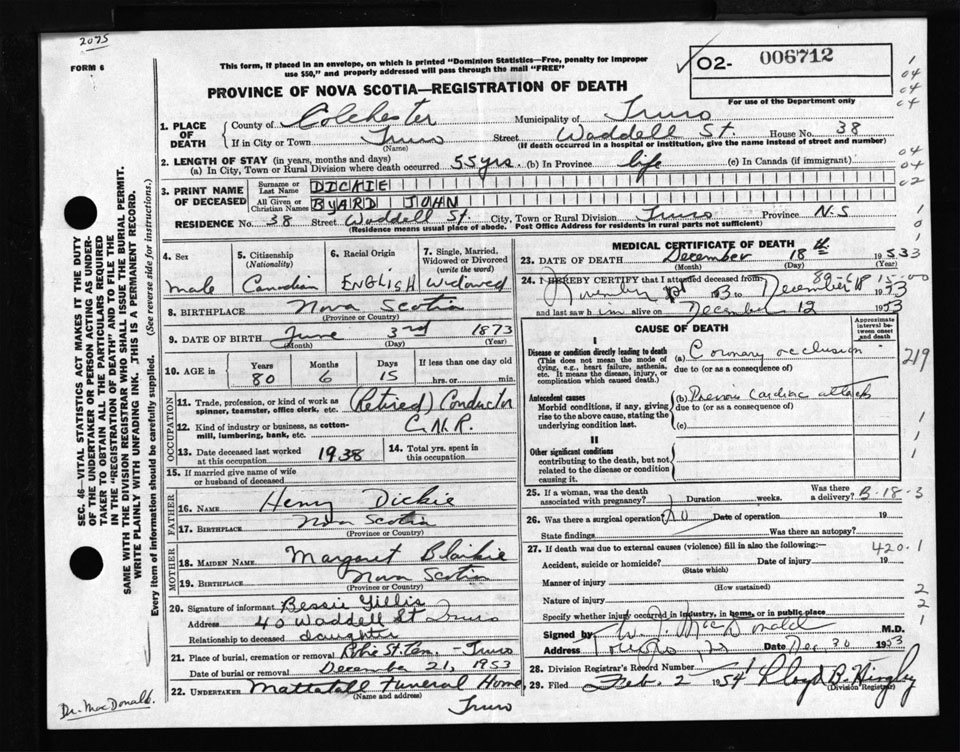 2075
FORM 6
This form, if placed in an envelope, on which is printed "Dominion Statistics—Free, penalty for improper
use $50," and properly addressed will pass through the mail "FREE"
O2- 006712
For use of the Department only
PROVINCE OF NOVA SCOTIA—REGISTRATION OF DEATH
1. PLACE OF DEATH
County of Colchester Municipality of Truro
If in City or Town Truro Street Waddell St. House No. 38
(Name) (If death occurred in a hospital or institution, give the name instead of street and number)
2. LENGTH OF STAY (in years, months and days)
(a) In City, Town or Rural Division where death occurred 55 yrs. (b) In Province life (c) In Canada (if immigrant)
3. PRINT NAME OF DECEASED
Surname or Last Name DICKIE
All Given or Christian Names BYARD JOHN
RESIDENCE No. 38 Street Waddell St. City, Town or Rural Division Truro Province N.S
(Residence means usual place of abode. Post Office Address for residents in rural parts not sufficient)
4. Sex male
5. Citizenship (Nationality) Canadian
6. Racial Origin ENGLISH
7. Single, Married, Widowed or Divorced (write the word) Widowed
8. BIRTHPLACE Nova Scotia
(Province or Country)
9. DATE OF BIRTH June 3rd 1873
(Month) (Day) (Year)
10. AGE in Years 80 Months 6 Days 15 If less than one day old hrs. or min.
OCCUPATION
11. Trade, profession, or kind of work as spinner, teamster, office clerk, etc. (Retired) Conductor
12. Kind of industry or business, as cotton-mill, lumbering, bank, etc. C.N.R.
13. Date deceased last worked at this occupation 1938
14. Total yrs. spent in this occupation
15. If married give name of wife or husband of deceased
FATHER
16. NAME Henry Dickie
17. BIRTHPLACE Nova Scotia
(Province or Country)
MOTHER
18. MAIDEN NAME Margaret Blaikie
19. BIRTHPLACE Nova Scotia
(Province or Country)
20. Signature of informant Bessie Gillis
Address 40 Waddell St Truro
Relationship to deceased daughter
21. Place of burial, cremation or removal St. Cem. - Truro
Date of burial or removal December 21, 1953
22. UNDERTAKER Mattatall Funeral Home,
(Name and address)
Truro
MEDICAL CERTIFICATE OF DEATH
23. DATE OF DEATH December 18th 1953
(Month) (Day) (Year)
24. I HEREBY CERTIFY that I attended deceased from
November 1st 1953 to December 18 1953
and last saw him alive on December 12 1953
CAUSE OF DEATH
Approximate interval between onset and death
I
Disease or condition directly leading to death (a) Coronary occlusion
(This does not mean the mode of dying, e.g., heart failure, asthenia, etc. It means the disease, injury, or complication which caused death.)
due to (or as a consequence of)
Antecedent causes (b) Previous cardiac attacks
Morbid conditions, if any, giving rise to the above cause, stating the underlying condition last.
due to (or as a consequence of)
(c)
II
Other significant conditions
contributing to the death, but not related to the disease or condition causing it.
25. If a woman, was the death associated with pregnancy? Duration weeks. Was there a delivery?
26. Was there a surgical operation? No Date of operation 19
State findings Was there an autopsy?
27. If death was due to external causes (violence) fill in also the following:—
Accident, suicide or homicide? Date of injury 19
(State which)
Manner of injury
(How sustained)
Nature of injury
Specify whether injury occurred in industry, in home, or in public place
Signed by MacDonald M.D.
Address Date Dec 30 1953
28. Division Registrar's Record Number
29. Filed Feb. 2 1954 Lloyd B.
(Division Registrar)
219
B-18-3
420.1
SEC. 46—VITAL STATISTICS ACT MAKES IT THE DUTY
OF THE UNDERTAKER OR PERSON ACTING AS UNDER-
TAKER TO OBTAIN ALL THE PARTICULARS REQUIRED
IN THE "REGISTRATION OF DEATH" AND TO FILE THE
SAME WITH THE DIVISION REGISTRAR WHO SHALL ISSUE THE BURIAL PERMIT.
WRITE PLAINLY WITH UNFADING INK. THIS IS A PERMANENT RECORD.
Every item of information should be carefully supplied. (See reverse side for instructions.)
Dr. MacDonald.